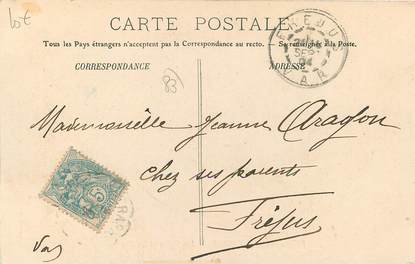 lot
CARTE POSTALE
Tous les Pays étrangers n'acceptent pas la Correspondance au recto. — Se renseigner à la Poste.
CORRESPONDANCE
ADRESSE
FREJUS
SEPT
04
VAR
83
Mademoiselle Jeanne Aragon
Chez ses parents
Fréjus
Var